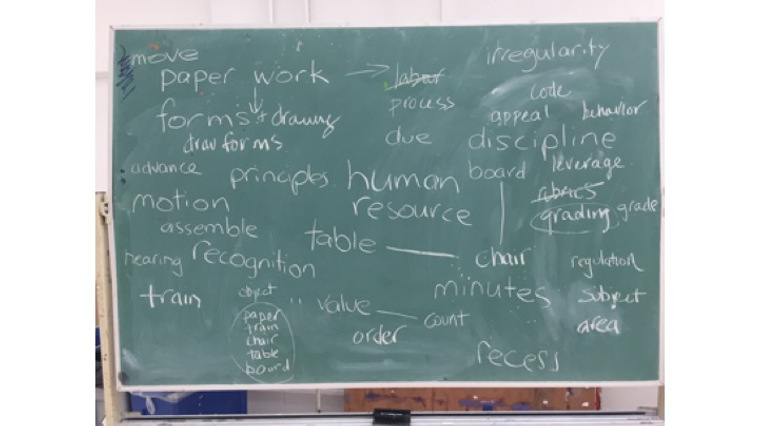 move
irregularity
paper work
labor
process
code
appeal
behavior
forms + drawing
draw forms
due
discipline
advance
principles
human
board
leverage
motion
resource
grading
grade
assemble
table
chair
hearing
recognition
regulation
train
object
value
minutes
subject
paper
train
chair
table
board
order
count
area
recess